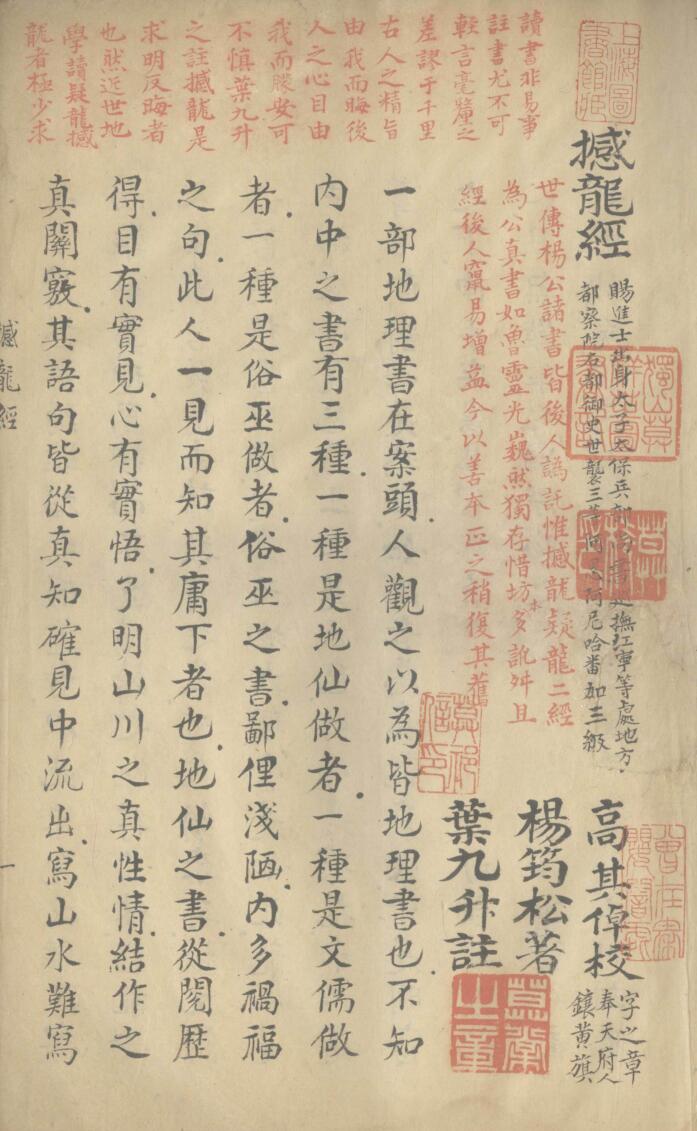 上海圖書館藏
讀書非易事
註書尤不可
輕言毫釐之
差謬于千里
古人之精旨
由我而晦後
人之心目由
我而矇安可
不慎葉九升
之註撼龍是
求明反晦者
也然近世地
學讀疑龍撼
龍者極少求
撼龍經
賜進士出身太子太保兵部尚書巡撫江寧等處地方
都察院右都御史世襲三等阿尼哈番加三級
高其倬校
字之章
奉天府人
鑲黃旗
楊筠松著
葉九升註
世傳楊公諸書皆後人譌託惟撼龍疑龍二經
為公真書如魯靈光巍然獨存惜坊本多訛舛且
經後人竄易增益今以善本正之稍復其舊
一部地理書在案頭人觀之以為皆地理書也不知
內中之書有三種一種是地仙做者一種是文儒做
者一種是俗巫做者俗巫之書鄙俚淺陋內多禍福
之句此人一見而知其庸下者也地仙之書從閱歷
得目有實見心有實悟了明山川之真性情結作之
真關竅其語句皆從真知確見中流出寫山水難寫
撼龍經
一